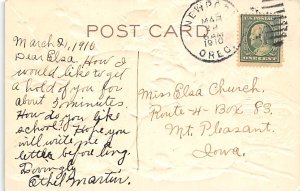 POST CARD
NEWPORT
MAR
1910
OREG.
March 21, 1910.
Dear Elsa. How I
would like to get
a hold of you for
about 5 minutes.
How do you like
school? Hope you
will write me a
letter before long.
Lovingly
Ethel Martin.
Miss Elsa Church.
Route 4 Box 83.
Mt. Pleasant.
Iowa.